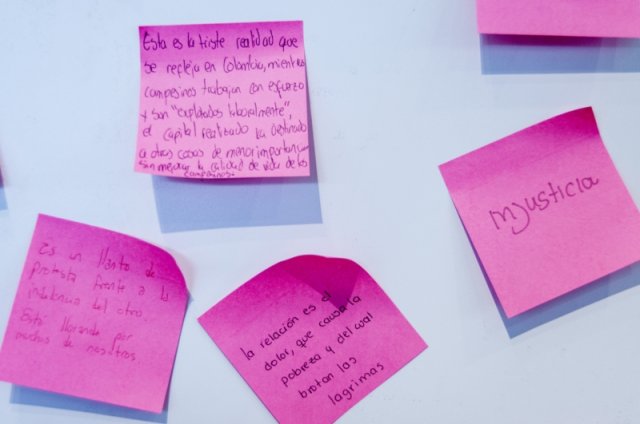 Esta es la triste realidad que
se refleja en Colombia, mientras
campesinos trabajan con esfuerzo
y son "explotados laboralmente",
el capital realizado va destinado
a otras cosas de menor importancia
sin mejorar la calidad de vida de los
campesinos.
Injusticia
Es un llanto de
protesta frente a la
indolencia del otro.
Está llorando por
muchos de nosotros
la relación es el
dolor, que causa la
pobreza y del cual
brotan las
lagrimas